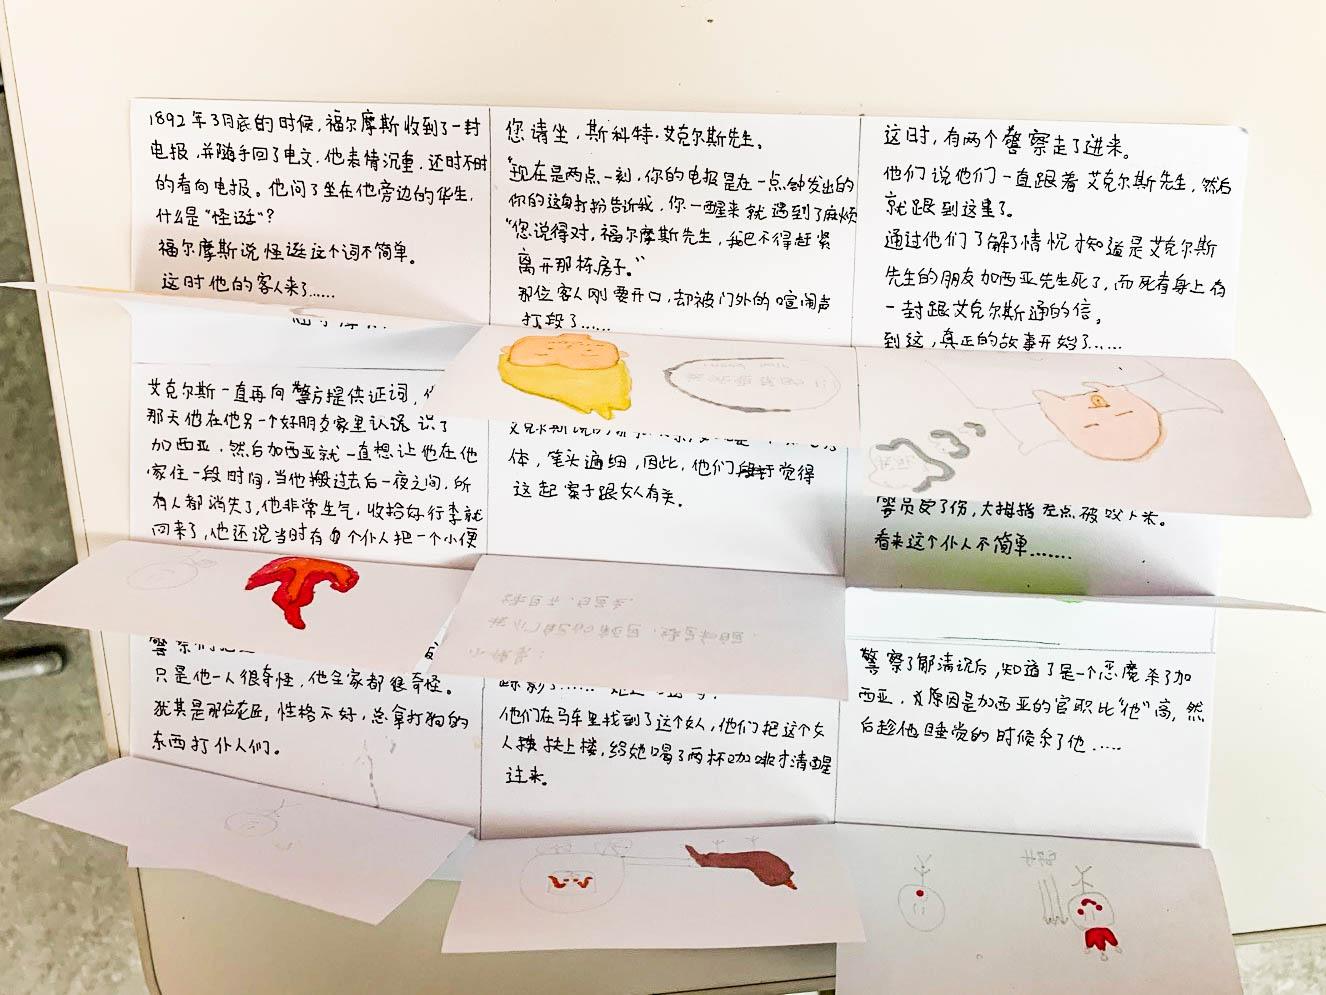 1892年3月底的时候，福尔摩斯收到了一封
电报，并随手回了电文，他表情沉重，还时不时
的看向电报。他问了坐在他旁边的华生，
什么是"怪诞"？
福尔摩斯说怪诞这个词不简单。
这时他的客人来了......
您请坐，斯科特·艾克尔斯先生。
"现在是两点一刻，你的电报是在一点钟发出的
你的这身打扮告诉我，你一醒来就遇到了麻烦
"您说得对，福尔摩斯先生，我巴不得赶紧
离开那栋房子。"
那位客人刚要开口，却被门外的喧闹声
打段了......
这时，有两个警察走了进来。
他们说他们一直跟着艾克尔斯先生，然后
就跟到这里了。
通过他们了解了情况才知道是艾克尔斯
先生的朋友加西亚先生死了，而死者身上有
一封跟艾克尔斯通的信。
到这，真正的故事开始了......
艾克尔斯一直再向警方提供证词，
那天他在他另一个好朋友家里认识了
加西亚，然后加西亚就一直想让他在他
家住一段时间，当他搬过去后一夜之间，所
有人都消失了，他非常生气，收拾好行李就
回来了，他还说当时有个仆人把一个小便
体，笔头遍细，因此，他们觉得
这起案子跟女人有关。
警员受了伤，大拇指差点被咬下来。
看来这个仆人不简单.......
只是他一人很奇怪，他全家都很奇怪。
犹其是那位花匠，性格不好，总拿打狗的
东西打仆人们。
他们在马车里找到了这个女人，他们把这个女
人扶上楼，给她喝了两杯咖啡才清醒
过来。
警察了解清况后，知道了是一个恶魔杀了加
西亚，原因是加西亚的官职比"他"高，然
后趁他睡觉的时候杀了他.....